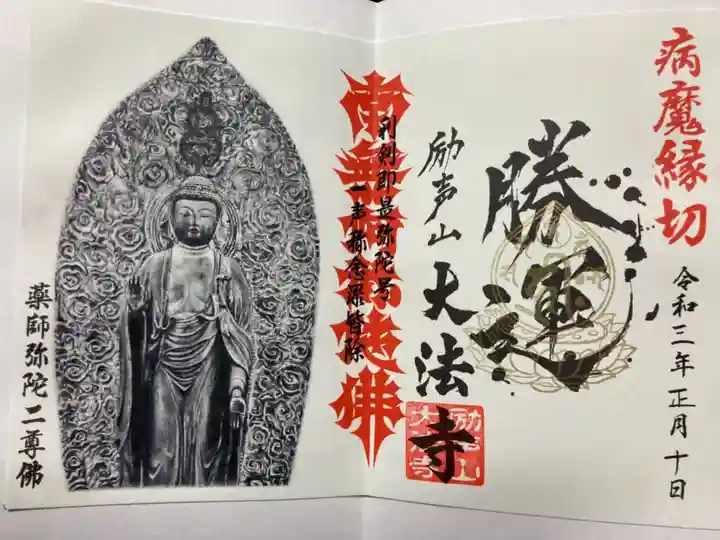 病魔縁切
令和三年正月十日
勝運
励声山
大法寺
利剣即是弥陀号
一声称念罪皆除
南無阿弥陀佛
薬師弥陀二尊佛